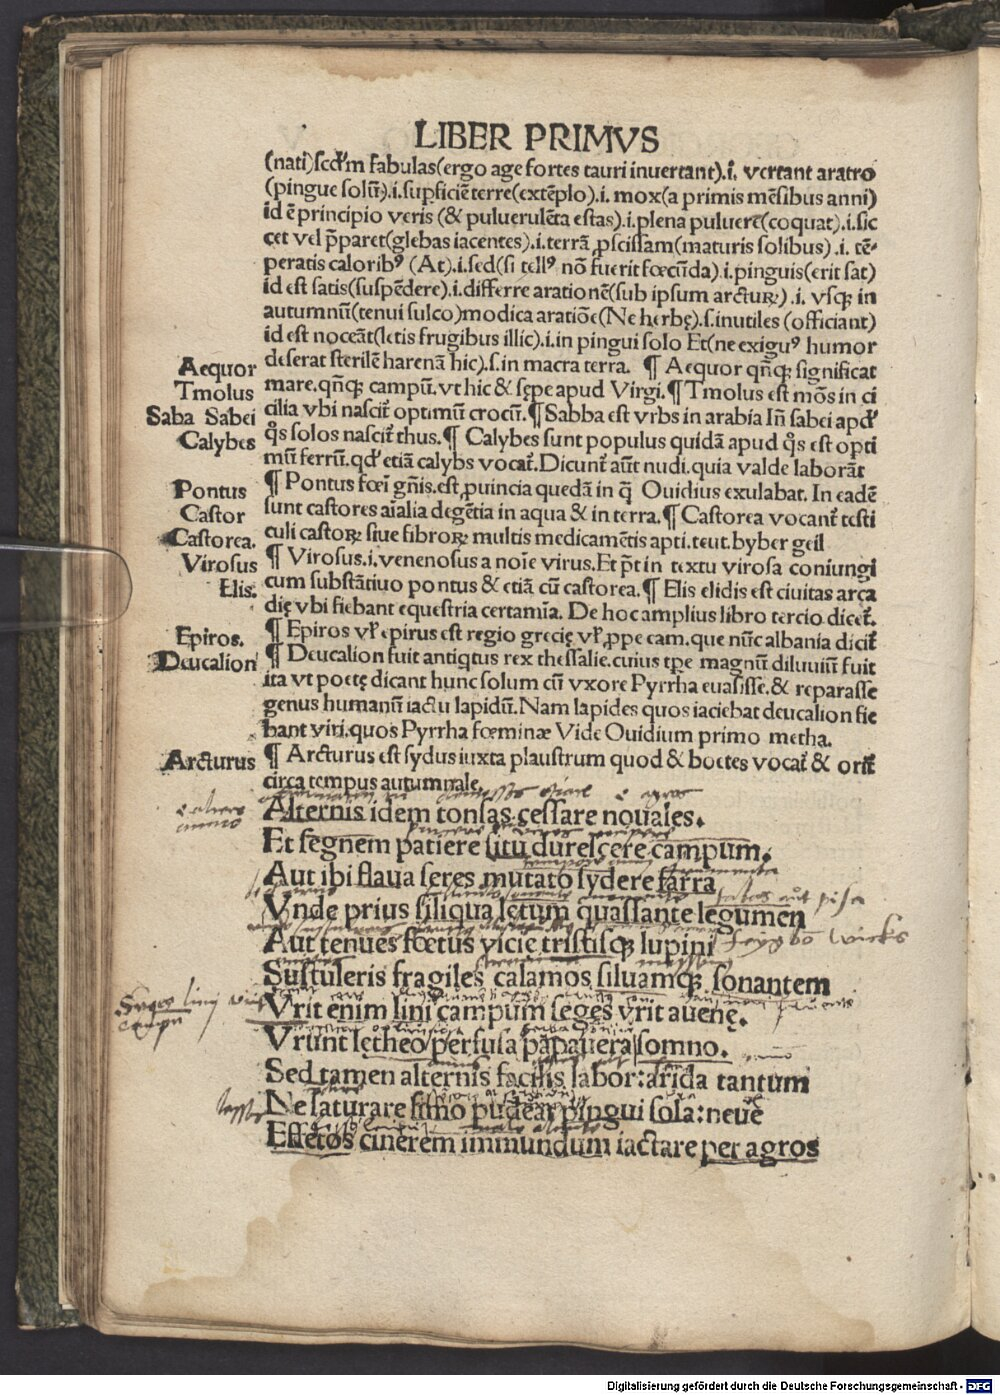 LIBER PRIMVS
(nati)scd'm fabulas(ergo age fortes tauri inuertant).i. vertant aratro
(pingue solū).i.supficiē terre(extēplo).i. mox(a primis mēsibus anni)
id ē principio veris (& puluerulēta estas).i.plena puluere(coquat).i.sic
cet vel p̄paret(glebas iacentes).i.terrā ꝓscissam(maturis solibus).i. tē-
peratis caloribꝰ (At).i.sed(si tellꝰ nō fuerit fœcūda).i.pinguis(erit sat)
id est satis(suspēdere).i.differre arationē(sub ipsum arcturꝝ).i. vsqꝫ in
autumnū(tenui sulco)modica aratiōe(Ne herbę).s.inutiles (officiant)
id est noceāt(letis frugibus illic).i.in pingui solo Et(ne exiguꝰ humor
Aequor deserat sterilē harenā hic).s.in macra terra. ¶ Aequor qn̄qꝫ significat
Tmolus mare.qn̄qꝫ campū.vt hic & sępe apud Virgi.¶ Tmolus est mōs in ci
Saba Sabei cilia vbi nascit̄ optimū crocū.¶ Sabba est vrbs in arabia In̄ sabei apd'
Calybes q̄s solos nascit̄ thus.¶ Calybes sunt populus quidā apud q̄s est opti
mū ferrū.qd' etiā calybs vocat̄.Dicunt̄ aūt nudi.quia valde laborāt
Pontus ¶ Pontus fœī gn̄is.est ꝓuincia quedā in q̄ Ouidius exulabat. In eadē
Castor sunt castores aīalia degētia in aqua & in terra.¶ Castorea vocant̄ testi
Castorea. culi castorꝝ siue fibrorꝝ multis medicamētis apti.teut.byber geil
Virosus ¶ Virosus.i.venenosus a noīe virus.Et p̄t in textu virosa coniungi
Elis. cum substātiuo pontus & etiā cū castorea.¶ Elis elidis est ciuitas arca
dię vbi fiebant equestria certamīa. De hoc amplius libro tercio dicet̄.
Epiros. ¶ Epiros vl' epirus est regio grecię vl' ꝓpe eam.que nūc albania dicit̄
Deucalion ¶ Deucalion fuit antiqtus rex thessalie.cuius tp̄e magnū diluuiū fuit
ita vt poetę dicant hunc solum cū vxore Pyrrha euasisse.& reparasse
genus humanū iactu lapidū.Nam lapides quos iaciebat deucalion fie
bant viri.quos Pyrrha fœminæ Vide Ouidium primo metha.
Arcturus ¶ Arcturus est sydus iuxta plaustrum quod & boetes vocat̄ & orit̄
circa tempus autumnale.
Alternis idem tonsas cessare nouales.
Et segnem patiere situ durescere campum.
Aut ibi flaua seres mutato sydere farra
Vnde prius siliqua letum quassante legumen
Aut tenues fœtus vicie tristisqꝫ lupini
Sustuleris fragiles calamos siluamqꝫ sonantem
Vrit enim lini campum seges vrit auenę.
Vrunt lętheo perfusa papauera somno.
Sed tamen alternis facilis labor:arida tantum
Ne saturare fimo pudeat pingui sola:neue
Effetos cinerem immundum iactare per agros
Digitalisierung gefördert durch die Deutsche Forschungsgemeinschaft - DFG